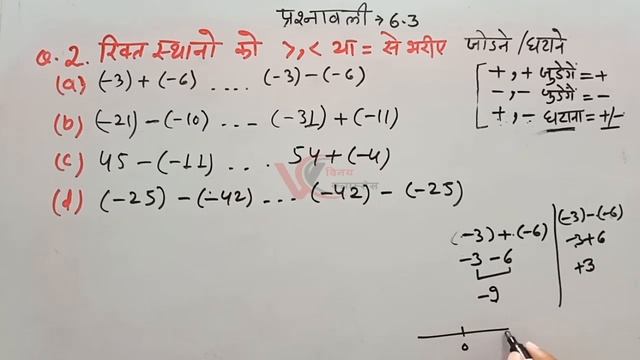 प्रश्नावली → 6.3
Q.2. रिक्त स्थानो को >, < या = से भरीए
(a) (-3) + (-6) .... (-3) - (-6)
(b) (-21) - (-10) ... (-31) + (-11)
(c) 45 - (-11) ... 54 + (-4)
(d) (-25) - (-42) ... (-42) - (-25)
जोडने / घटाने
+, + जुडेगें = +
-, - जुडेगें = -
+, - घटाना = +/-
विनय
(-3) + (-6)
-3 - 6
-9
(-3) - (-6)
-3 + 6
+3
0